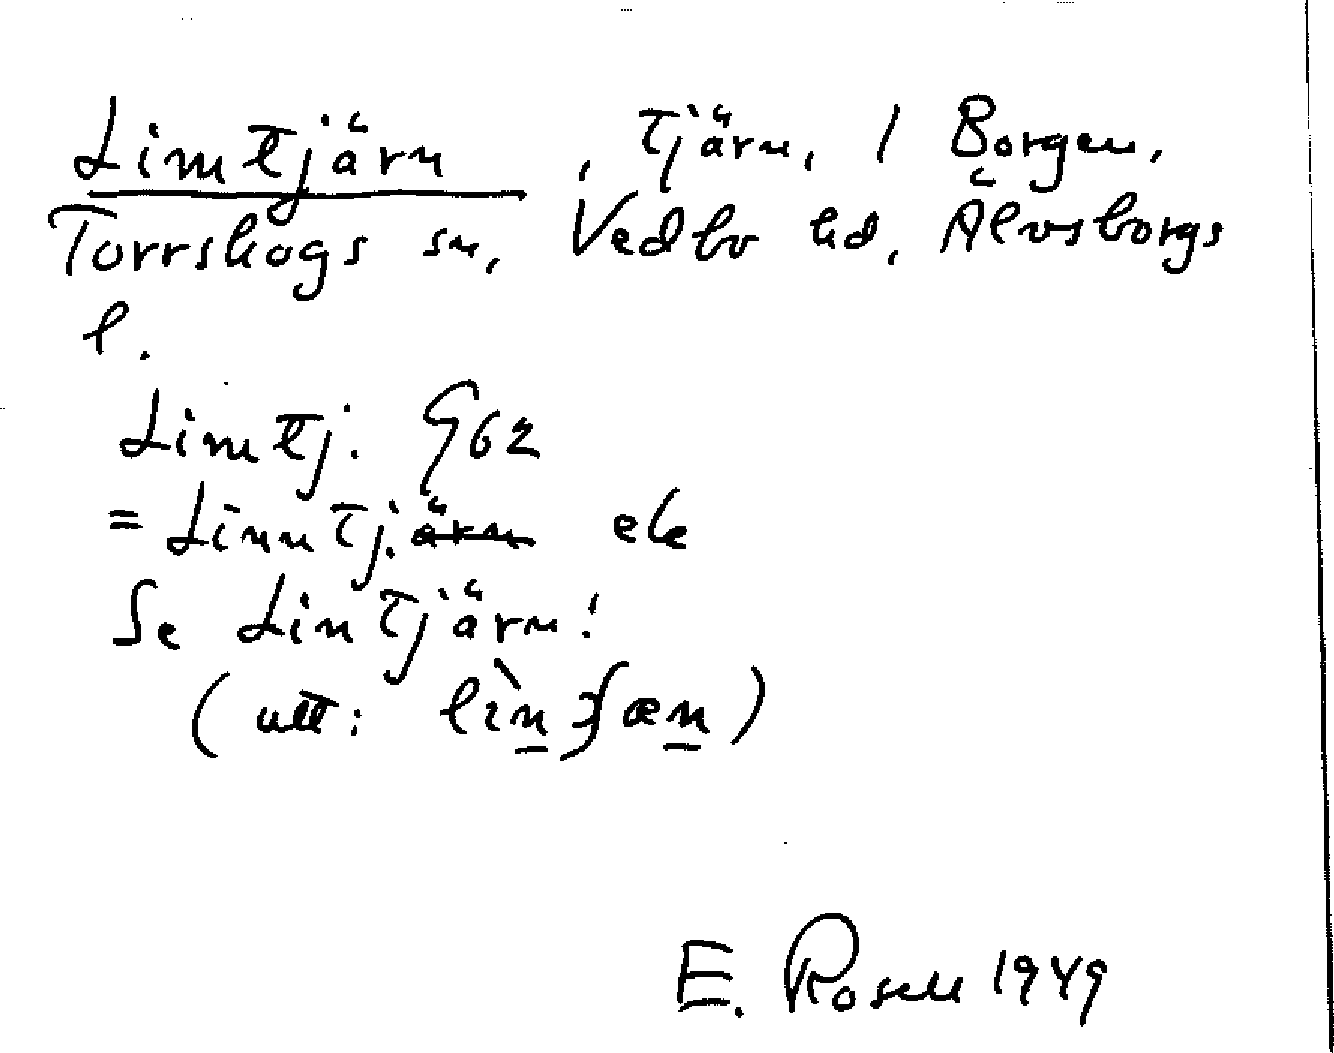 Limtjärn, tjärn, 1 Borgen,
Torrskogs sn, Vedbo hd, Älvsborgs
l.
Limtj. G62
= Linntj. ärn ek
Se Lintjärn!
(utt:
E. Rosell 1949